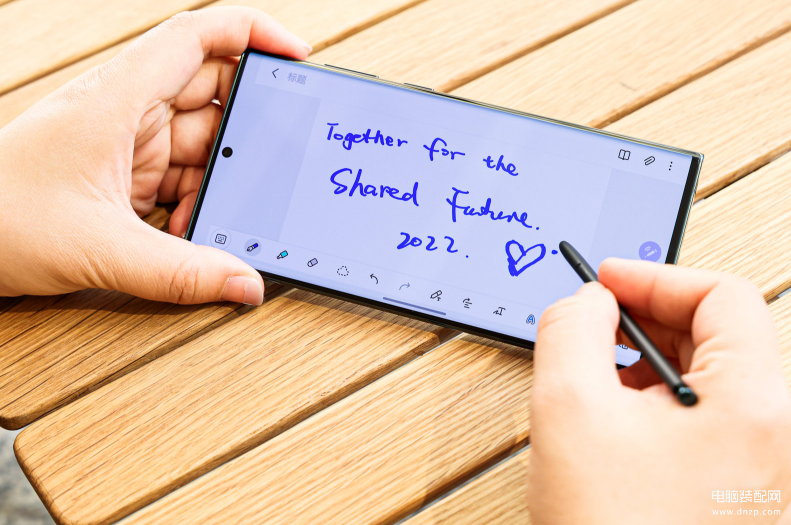 标题
Together for the
Shared Future.
2022.
电脑装配网
www.dnzp.com